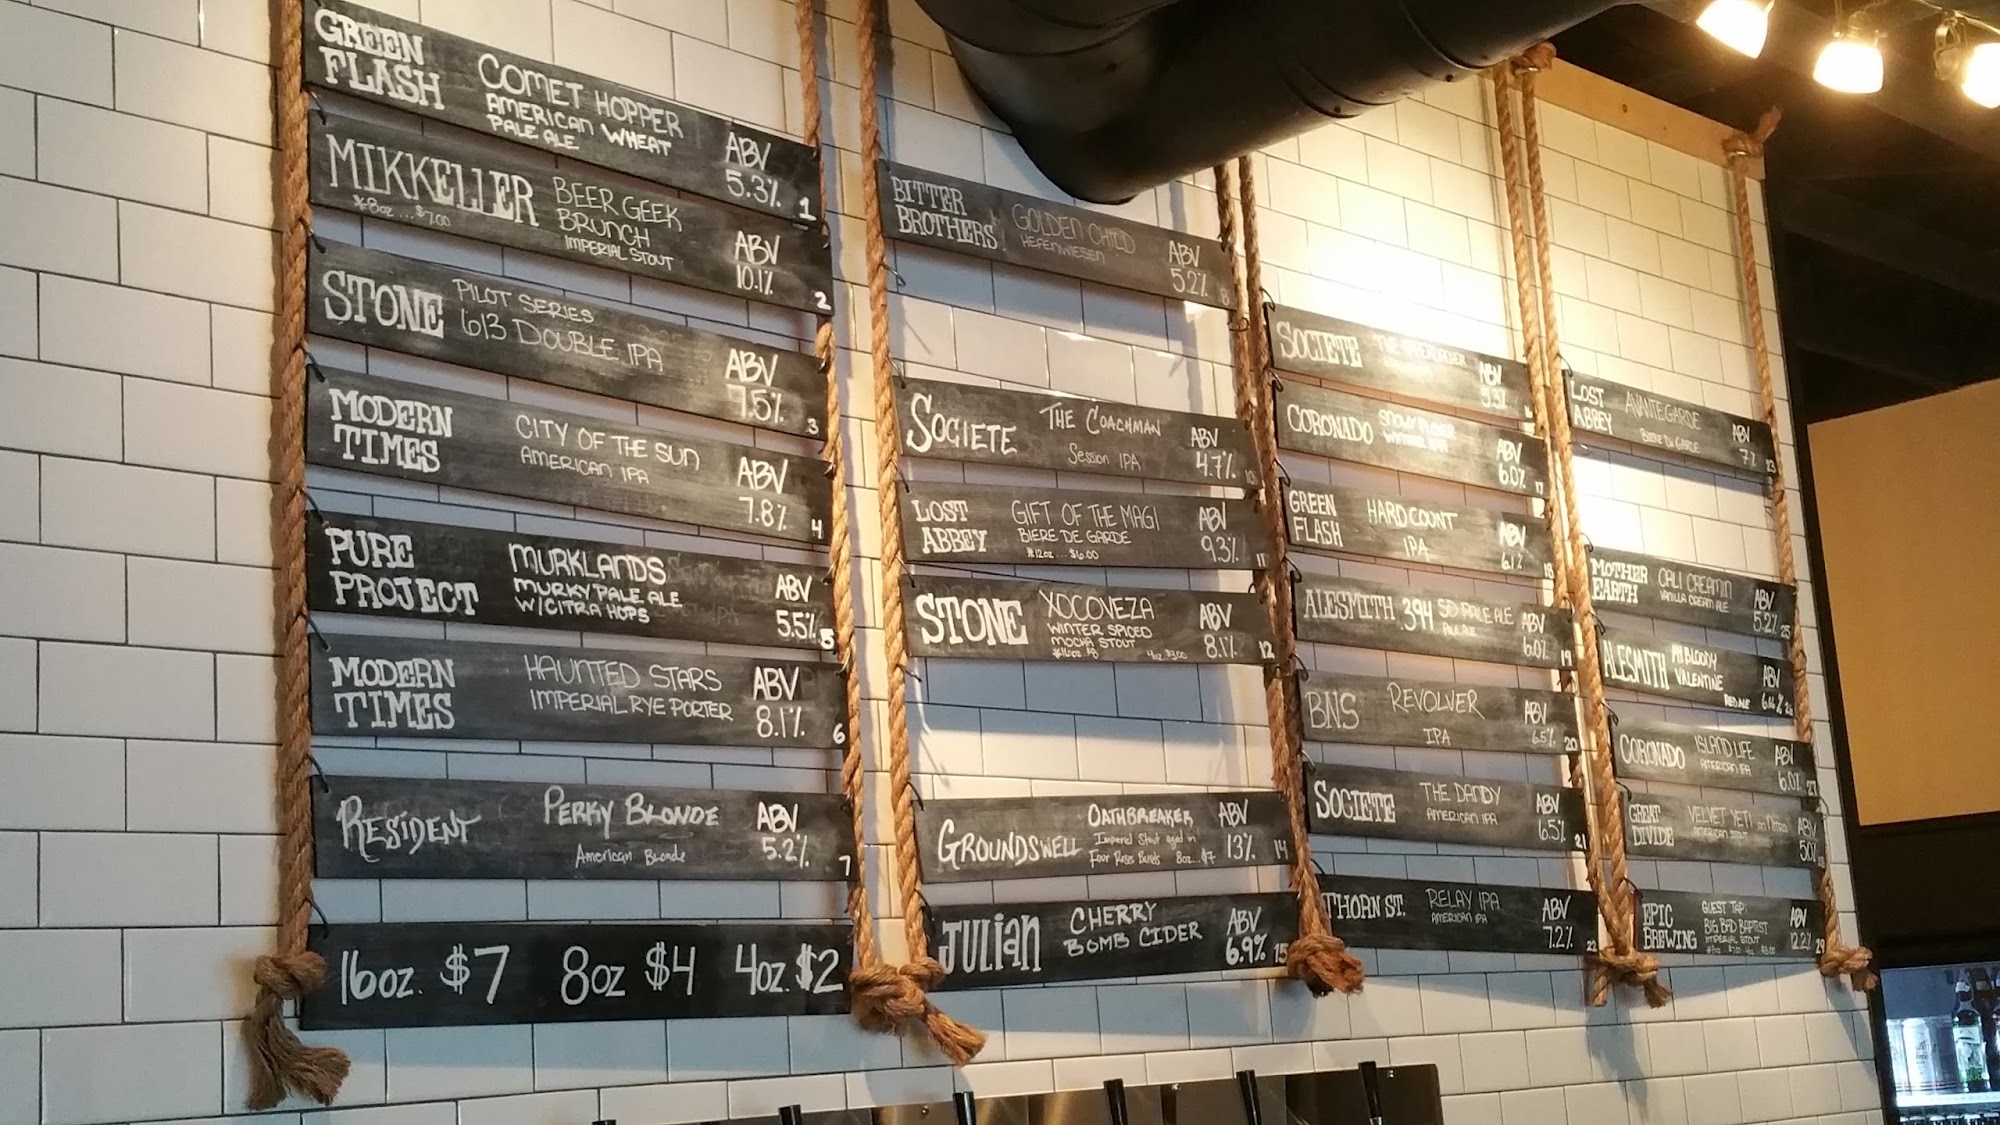 GREEN FLASH
COMET HOPPER
AMERICAN WHEAT
PALE ALE
ABV
5.3%
1
MIKKELLER
*8oz...$7.00
BEER GEEK
BRUNCH
IMPERIAL STOUT
ABV
10.1%
2
STONE
PILOT SERIES
613 DOUBLE IPA
ABV
7.5%
3
MODERN TIMES
CITY OF THE SUN
AMERICAN IPA
ABV
7.8%
4
PURE PROJECT
MURKLANDS
MURKY PALE ALE
W/CITRA HOPS
ABV
5.5%
5
MODERN TIMES
HAUNTED STARS
IMPERIAL RYE PORTER
ABV
8.1%
6
RESIDENT
PERKY BLONDE
American Blonde
ABV
5.2%
7
16oz. $7 8oz $4 4oz. $2
BITTER BROTHERS
GOLDEN CHILD
HEFEWIESEN
ABV
5.2%
8
SOCIETE
THE COACHMAN
Session IPA
ABV
4.7%
10
LOST ABBEY
GIFT OF THE MAGI
BIERE DE GARDE
*12oz...$6.00
ABV
9.3%
11
STONE
XOCOVEZA
WINTER SPICED
MOCHA STOUT
4oz. $3.00
ABV
8.1%
12
GROUNDSWELL
OATHBREAKER
Imperial Stout aged in
Four Roses Barrels 8oz...$7
ABV
13%
14
JULIAN
CHERRY
BOMB CIDER
ABV
6.9%
15
SOCIETE
THE
ABV
16
CORONADO
SNOWY PLOVER
ABV
6.0%
17
GREEN FLASH
HARD COUNT
IPA
ABV
6.1%
18
ALESMITH
.394 SD PALE ALE
PALE ALE
ABV
6.0%
19
BNS
REVOLVER
IPA
ABV
6.5%
20
SOCIETE
THE DANDY
AMERICAN IPA
ABV
6.5%
21
THORN ST.
RELAY IPA
AMERICAN IPA
ABV
7.2%
22
LOST ABBEY
AVANTE GARDE
BIERE DE GARDE
ABV
7%
23
MOTHER EARTH
CALI CREAMIN
VANILLA CREAM ALE
ABV
5.2%
25
ALESMITH
MY BLOODY
VALENTINE
RED ALE
ABV
6.66%
CORONADO
ISLAND LIFE
AMERICAN IPA
ABV
6.0%
27
GREAT DIVIDE
VELVET YETI on Nitro
AMERICAN STOUT
ABV
5.0%
EPIC BREWING
GUEST TAP:
BIG BAD BAPTIST
IMPERIAL STOUT
ABV
12.2%
29